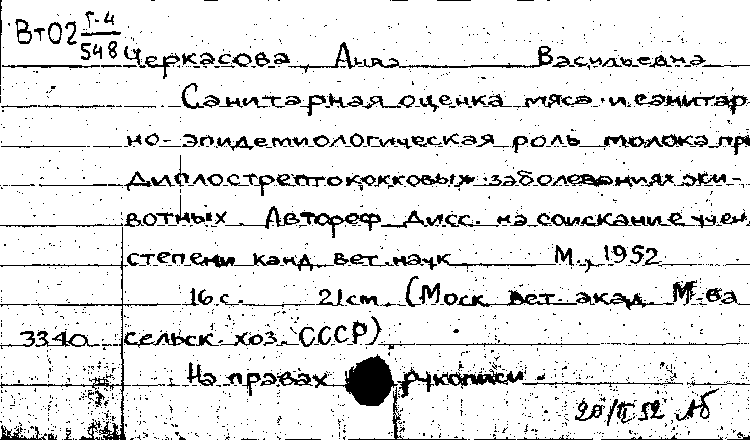 Вт02 Г-4/548
Черкасова, Анна Васильевна
Санитарная оценка мяса и санитар-
но-эпидемиологическая роль молока при
диплострептококковых заболеваниях жи-
вотных. Автореф. дисс. на соискание учен.
степени канд. вет. наук. М., 1952
16 с. 21 см. (Моск. вет. акад. М-ва
3340 сельск. хоз. СССР)
На правах рукописи.
20/II 52